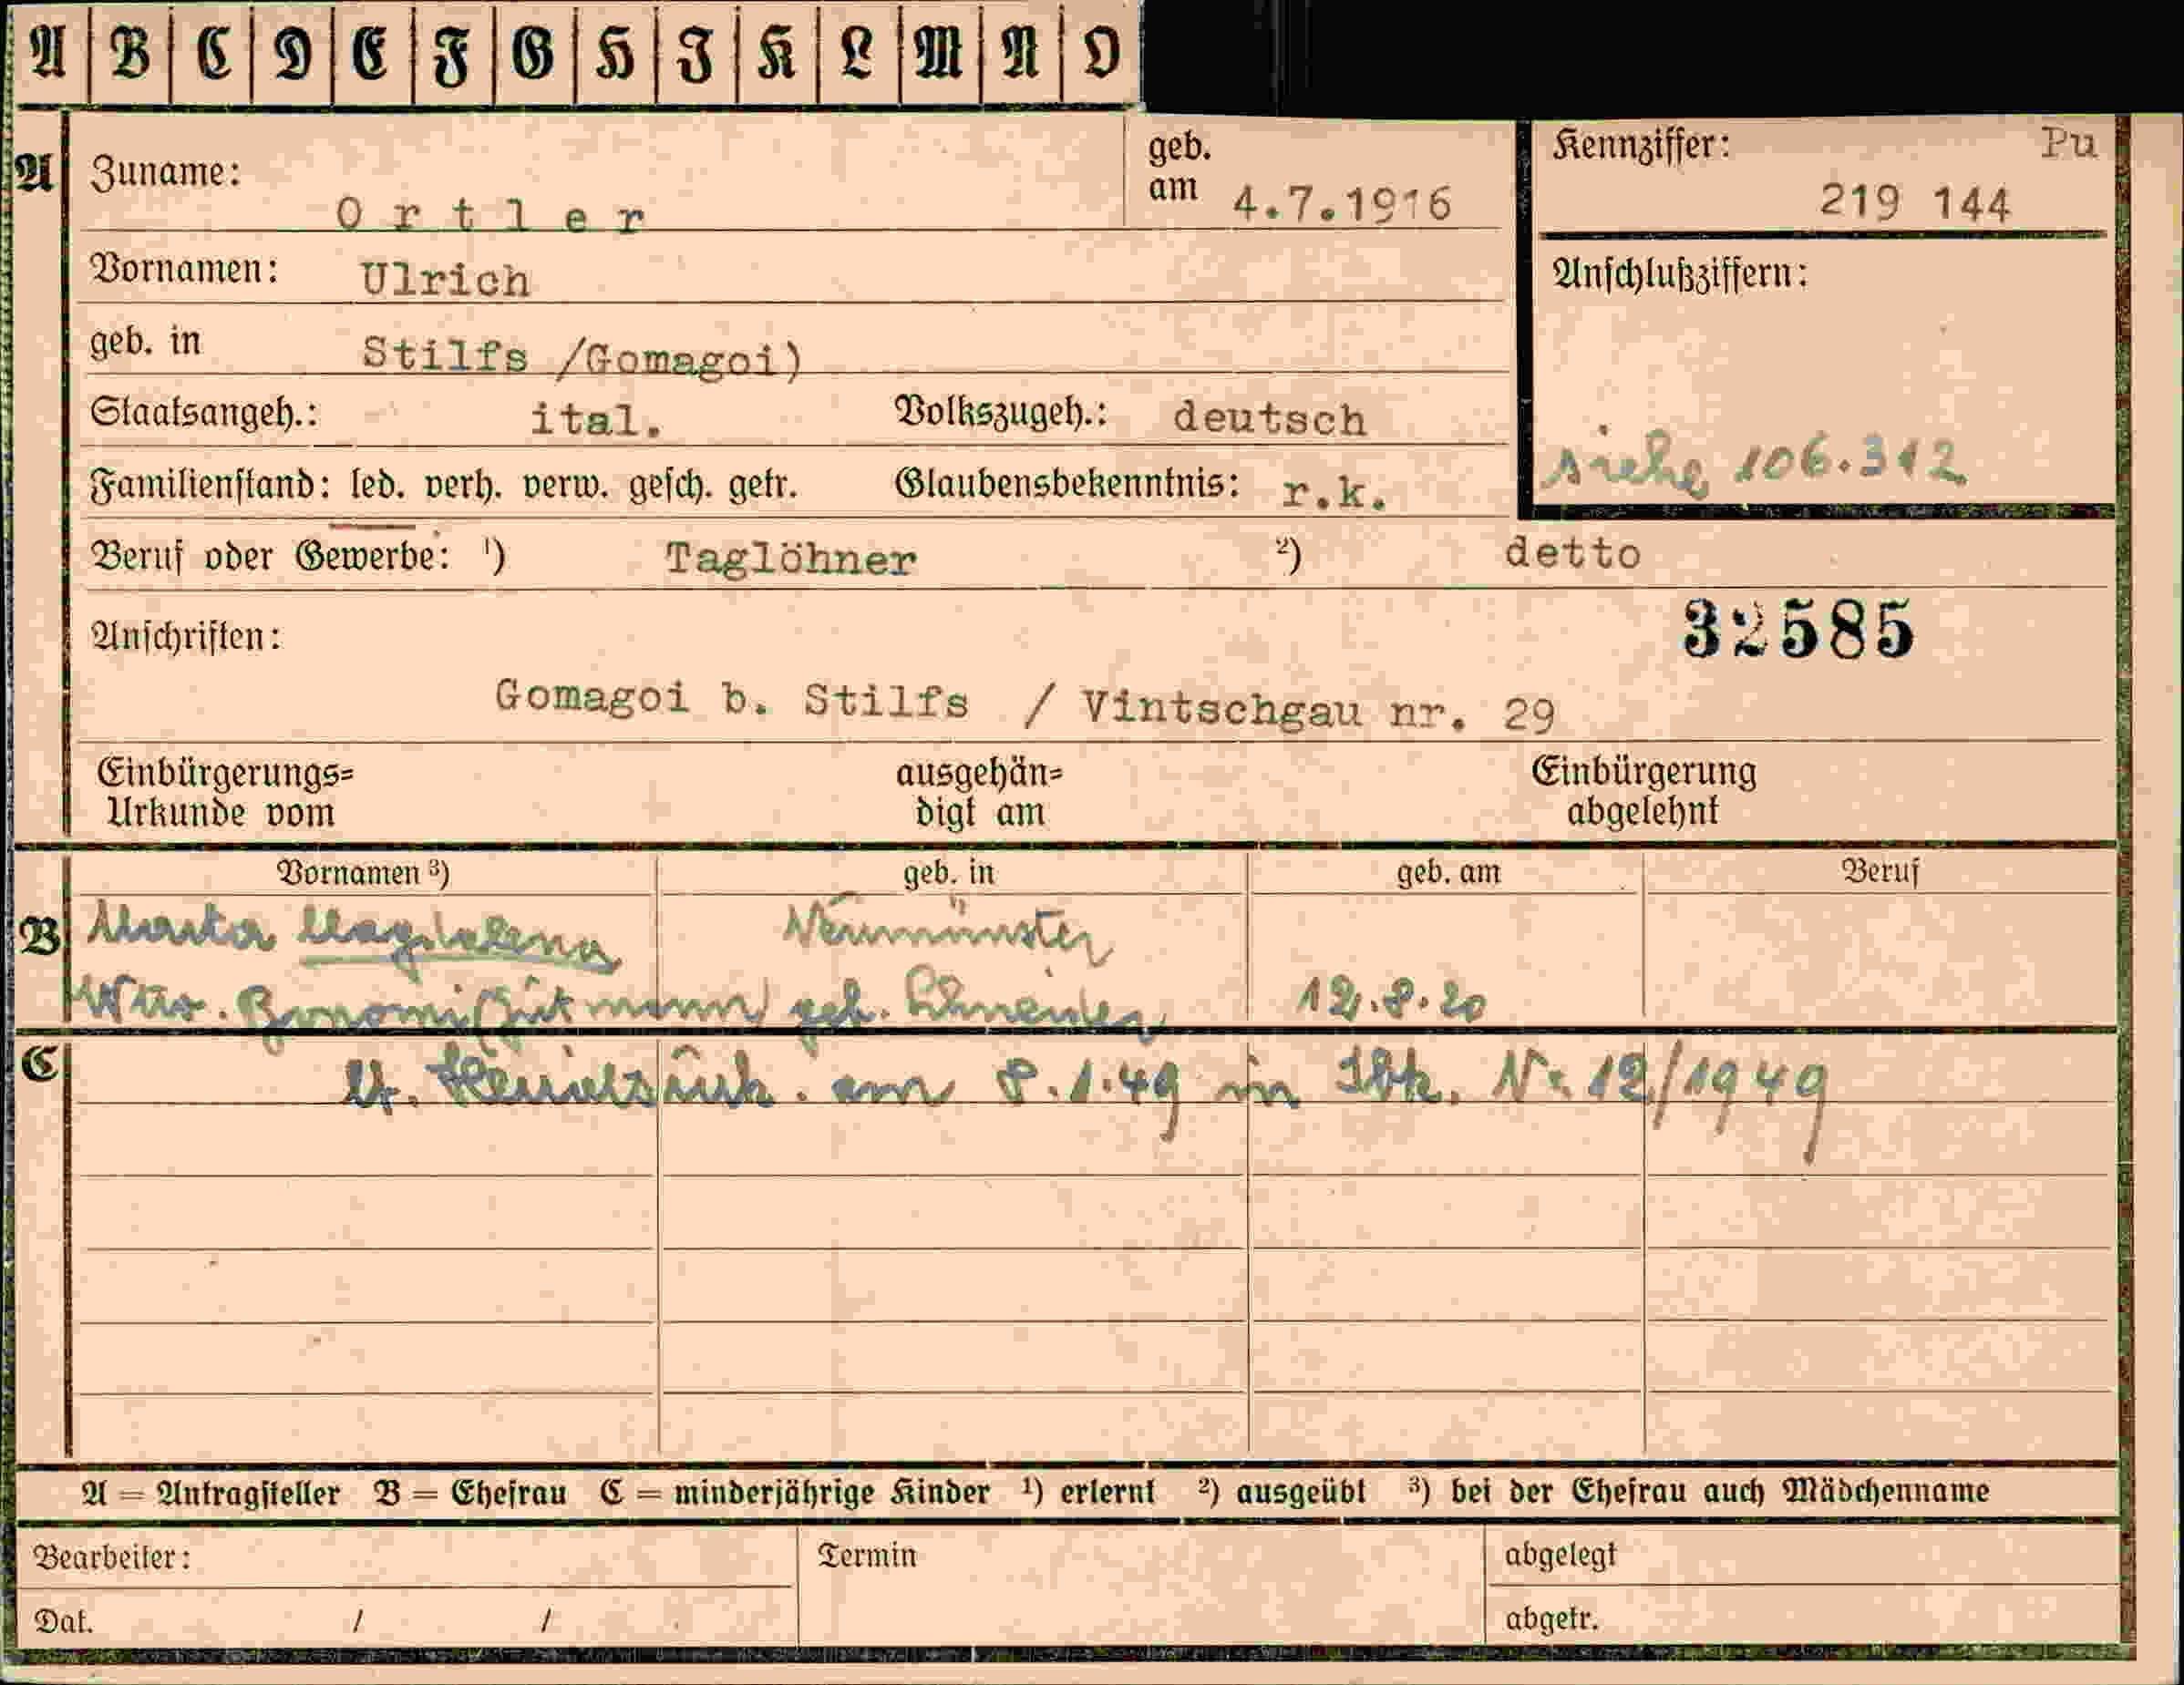 A B C D E F G H J K L M N O
A Zuname: Ortler geb. am 4.7.1916 Kennziffer: Pu 219 144
Vornamen: Ulrich Anschlußziffern:
geb. in Stilfs /Gomagoi)
Staatsangeh.: ital. Volkszugeh.: deutsch
Familienstand: led. verh. verw. gesch. getr. Glaubensbekenntnis: r.k. siehe 106.312
Beruf oder Gewerbe: ¹) Taglöhner ²) detto
Anschriften: 32585
Gomagoi b. Stilfs / Vintschgau nr. 29
Einbürgerungs= ausgehän= Einbürgerung
Urkunde vom digt am abgelehnt
Vornamen ³) geb. in geb. am Beruf
B Marta Magdalena Neumünster
Witw. geb. Schneider 12.8.20
C lt. Heiratsurk. am 8.1.49 in Ibk. Nr. 12/1949
A = Antragsteller B = Ehefrau C = minderjährige Kinder ¹) erlernt ²) ausgeübt ³) bei der Ehefrau auch Mädchenname
Bearbeiter: Termin abgelegt
Dat. / / abgetr.